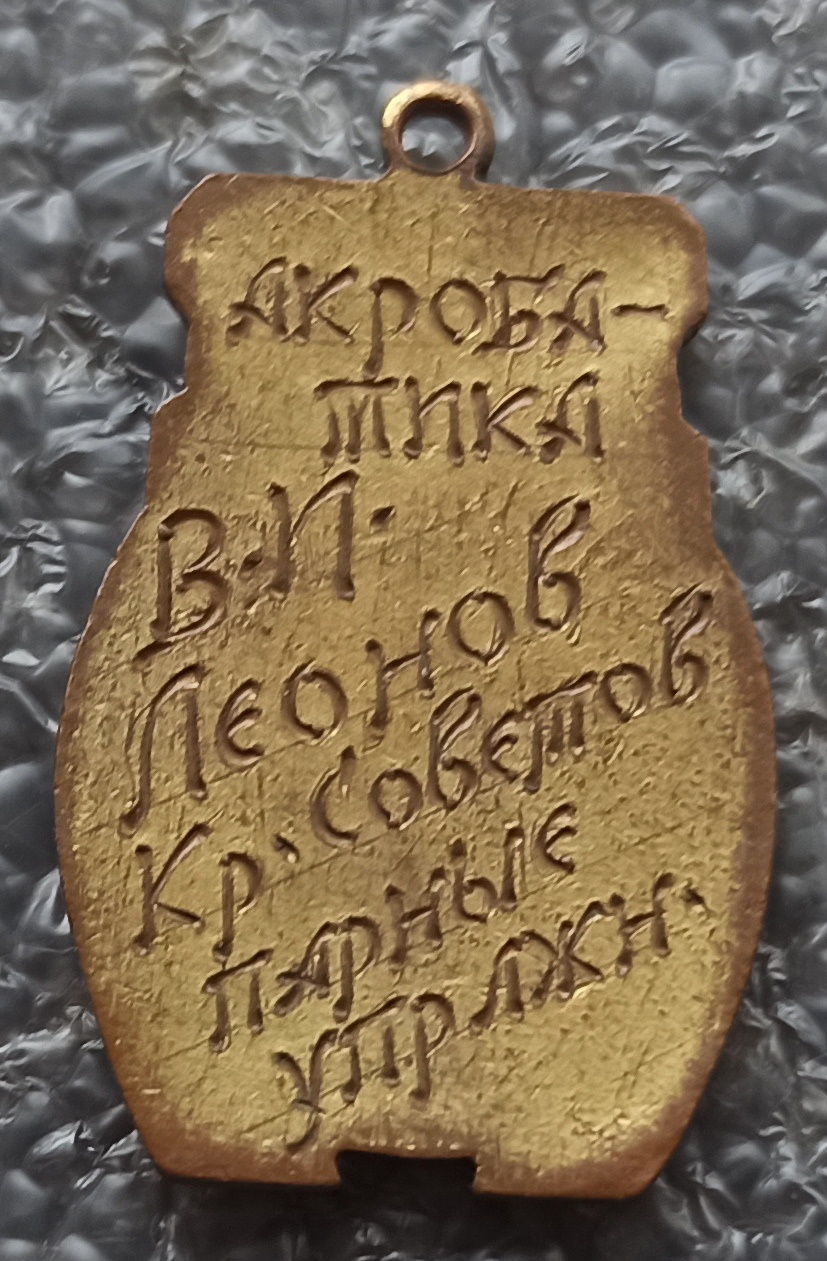 АКРОБА-
ТИКА
В.И.
Леонов
Кр. Советов
ПАРНЫЕ
УПРАЖН.